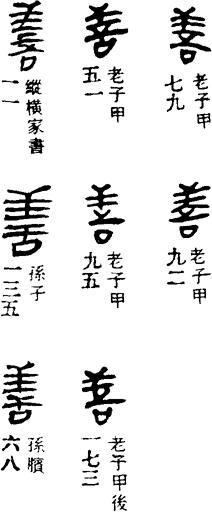 善
老子甲
七九
善
老子甲
九二
善
老子甲
五一
善
老子甲
九五
善
老子甲後
一七三
善
縱橫家書
一一
善
孫子
一三五
善
孫臏
六八